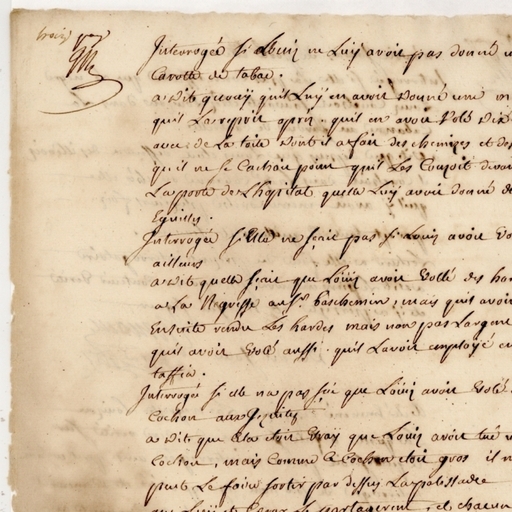 trois
Interrogée si Louis ne Luy avoit pas donné
Carotte de tabac.
a dit que ouy quil Luy en avoit donné une
quil Lareprit aprés, quil en avoit volé
avec de La toille dont il a fait des chemises et des
quil ne se Cachoit point quil Les Cousoit devant
Laporte de Lhopital quelle Luy avoit donné de
Eguilles.
Interrogée si Elle ne sçait pas si Louis avoit vo
ailleurs
a dit quelle sçait que Louis avoit vollé des har
a La Negresse au Sr. baschemin, mais quil avoi
Ensuite rendu Les hardes mais non pas Largent
quil avoit volé aussi. quil Lavoit employé en
taffia.
Interrogée si elle na pas sçu que Louis avoit volé
Cochon aux Jesuites
a dit que Cela étoit vray que Louis avoit tué
Cochon, mais Comme Ce Cochon étoit gros il n
pust Le faire sortir par dessus La palissade
partagerent, et chacun